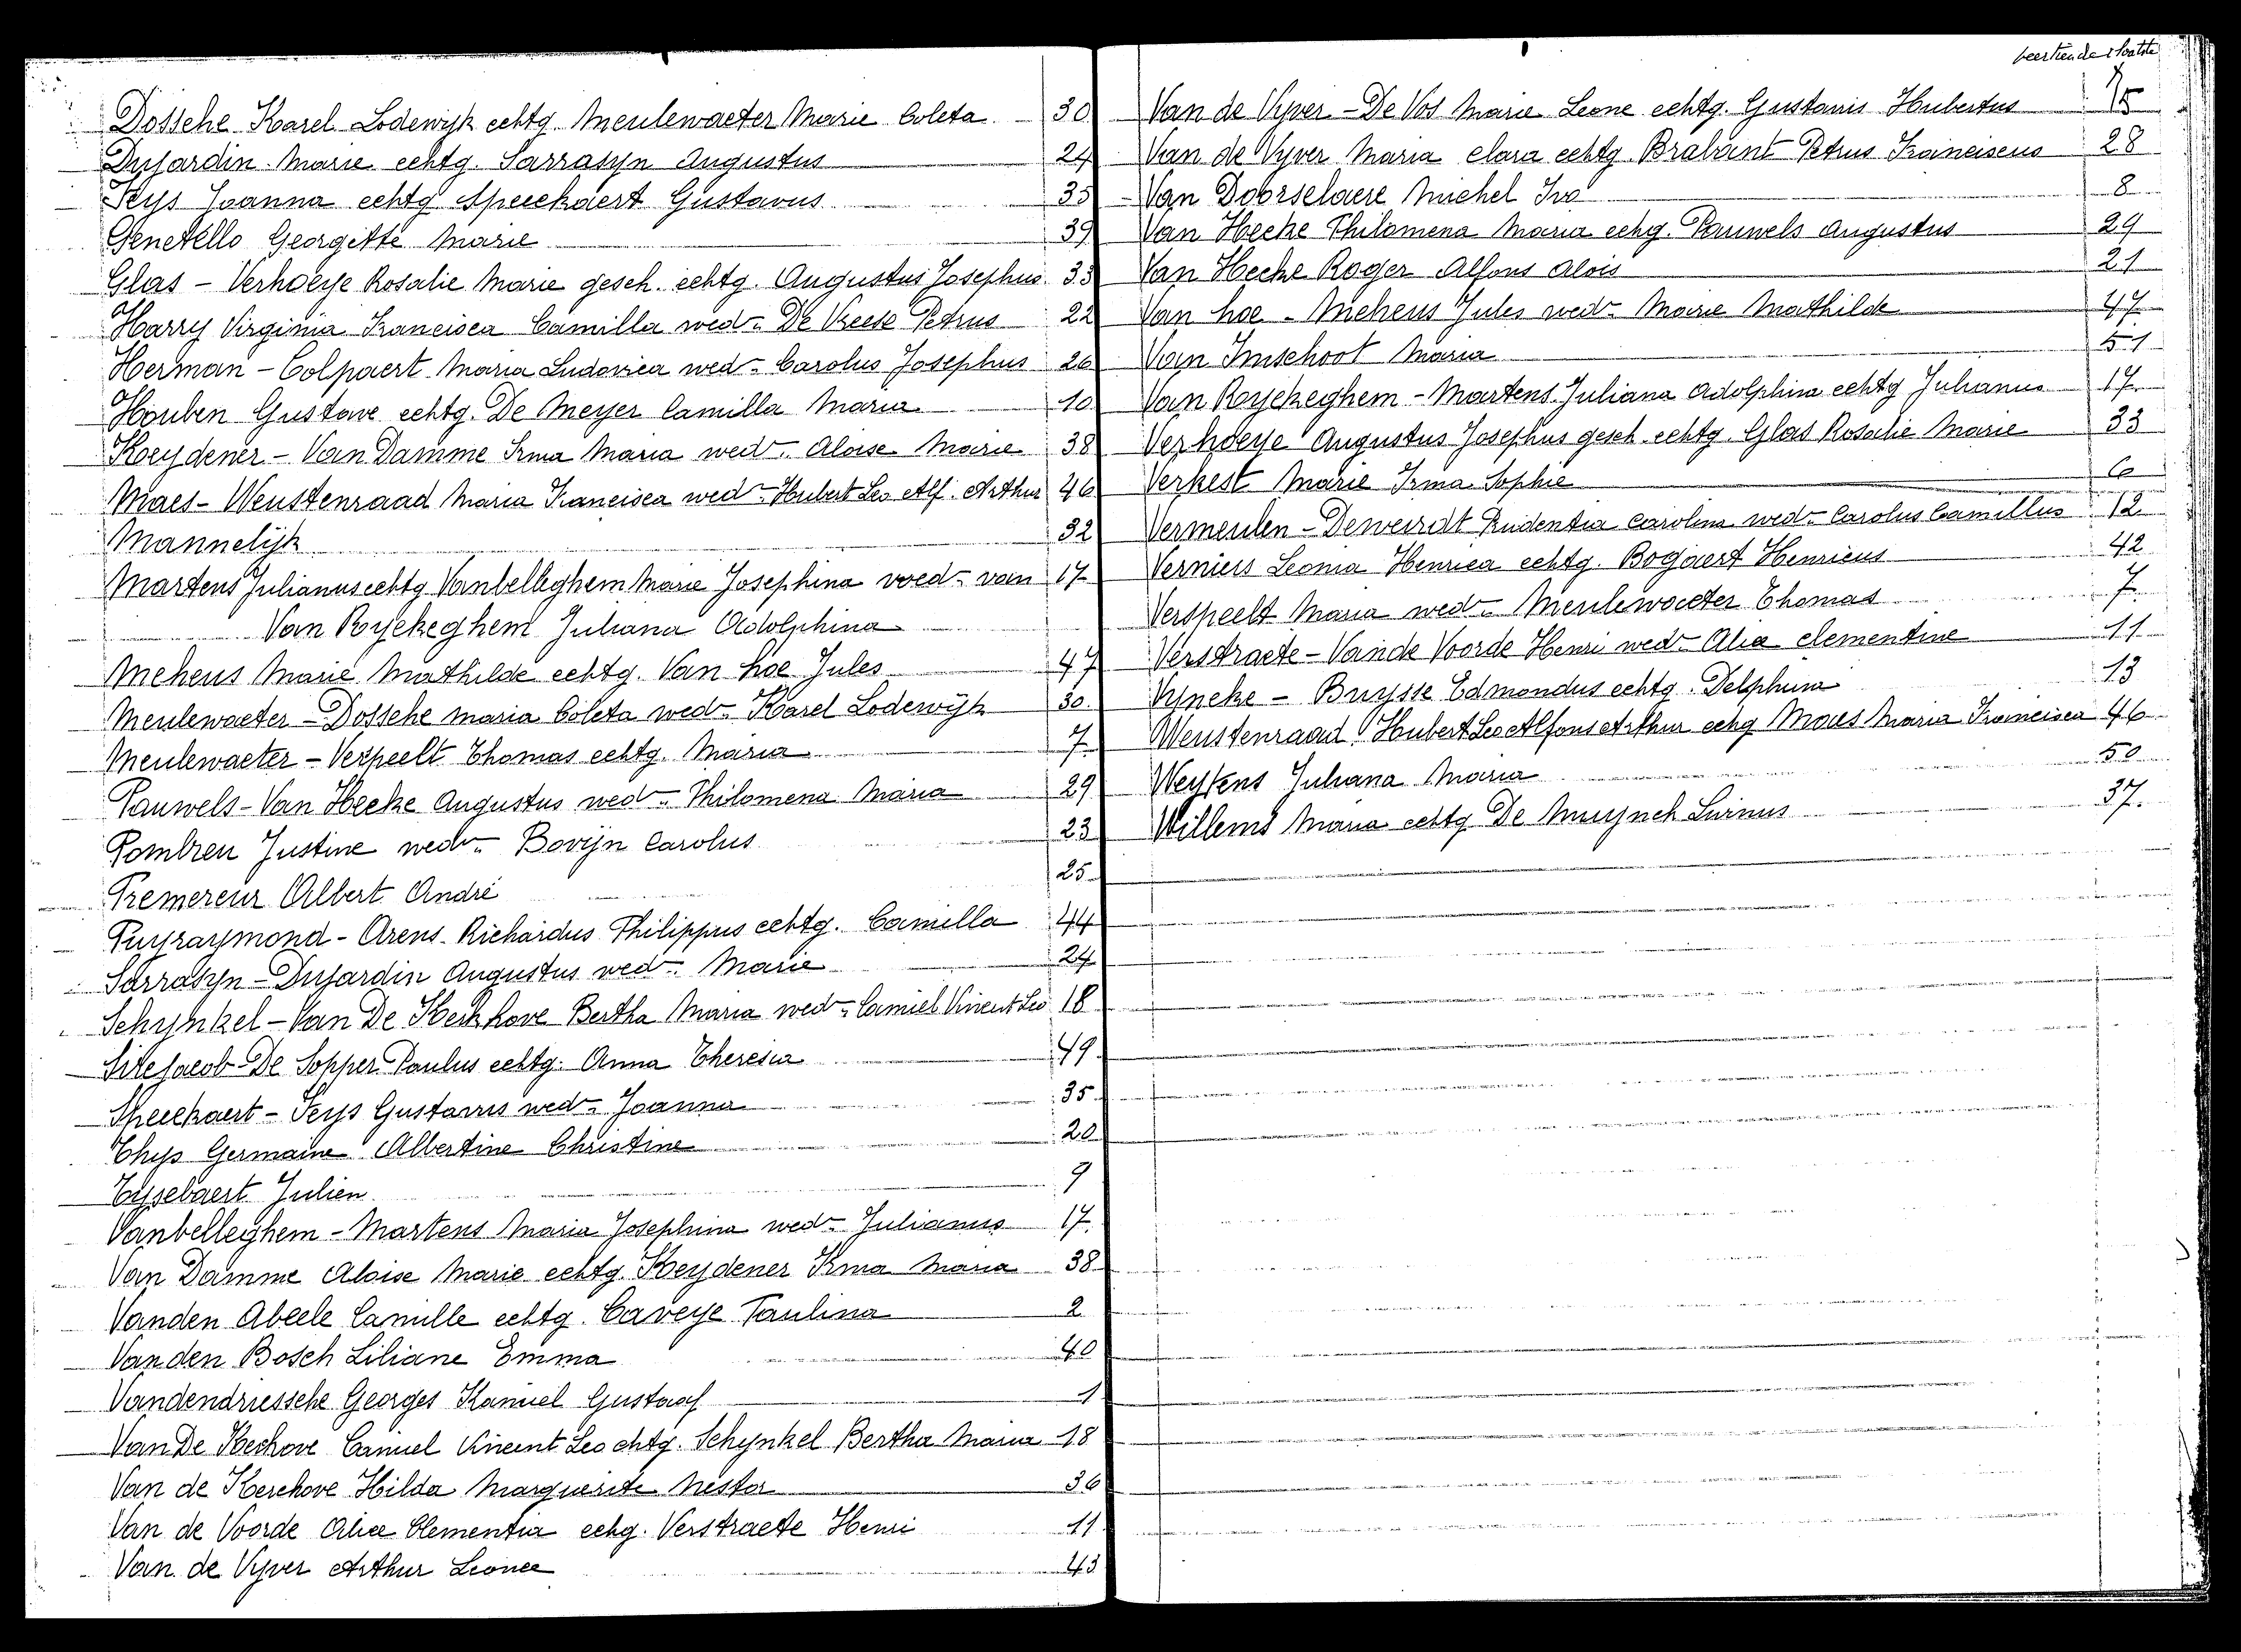 Dossche Karel Lodewijk echtg. Meulewaeter Marie Coleta 30
Dujardin Marie echtg. Sarrasyn Augustus 24
Feys Joanna echtg Speeckaert Gustavus 35
Genetello Georgette Marie 39
Glas - Verhoeye Rosalie Marie gesch. echtg. Augustus Josephus 33
Harry Virginia Francisca Camilla wed. De Vreese Petrus 22
Herman - Colpaert Maria Ludovica wed. Carolus Josephus 26
Houben Gustave echtg. De Meyer Camilla Maria 10
Koeydener - Van Damme Irma Maria wed. Aloise Marie 38
Maes - Weustenraad Maria Francisca wed. Hubert Leo Alf. Arthur 46
Mannelijk 32
Martens Julianus echtg Vanbelleghem Marie Josephina wed. van 17
Van Ryckeghem Juliana Adolphina
Meheus Marie Mathilde echtg. Van hoe Jules 47
Meulewaeter - Dossche Maria Coleta wed. Karel Lodewijk 30
Meulewaeter - Verspeelt Thomas echtg. Maria 7
Pauwels - Van Hecke Augustus wed. Philomena Maria 29
Pombren Justine wed. Bovijn Carolus 23
Premereur Albert André 25
Puyraymond - Arens Richardus Philippus echtg. Camilla 44
Sarrasyn - Dujardin Augustus wed. Marie 24
Schynkel - Van De Kerkhove Bertha Maria wed. Camiel Vincent Leo 18
Sitejacob - De Sopper Paulus echtg. Anna Theresia 49
Speeckaert - Feys Gustavus wed. Joanna 35
Thys Germaine Albertine Christine 20
Tyssebaert Julien 9
Vanbelleghem - Martens Maria Josephina wed. Julianus 17
Van Damme Aloise Marie echtg. Koeydener Irma Maria 38
Vanden Abeele Camille echtg. Caveye Paulina 2
Vanden Bosch Liliane Emma 40
Vandendriessche Georges Kamiel Gustaaf 1
Van De Kerchove Camiel Vincent Leo echtg. Schynkel Bertha Maria 18
Van de Kerchove Hilda Marguerite Nestor 36
Van de Voorde Alice Clementia echg. Verstraete Henri 11
Van de Vyver Arthur Leonce 43
veertiende
Van de Vyver - De Vos Marie Leone echtg. Gustavus Hubertus 15
Van de Vyver Maria Clara echtg. Brabant Petrus Franciscus 28
Van Doorselaere Michel Ivo 8
Van Hecke Philomena Maria echg. Pauwels Augustus 29
Van Hecke Roger Alfons Alois 21
Van hoe - Meheus Jules wed. Marie Mathilde 47
Van Imschoot Maria 51
Van Ryckeghem - Martens Juliana Adolphina echtg Julianus 17
Verhoeye Augustus Josephus gesch. echtg. Glas Rosalie Marie 33
Verkest Marie Irma Sophie 6
Vermeulen - Deweirdt Prudentia Carolina wed. Carolus Camillus 12
Vernieis Leonia Henrica echtg. Bogaert Henricus 42
Verspeelt Maria wed. Meulewaeter Thomas 7
Verstraete - Van de Voorde Henri wed. Alice Clementine 11
Vyncke - Buysse Edmondus echtg. Delphina 13
Weustenraad Hubert Leo Alfons Arthur echg Maes Maria Francisca 46
Weytens Juliana Maria 50
Willems Maria echtg De Muynck Livinus 37